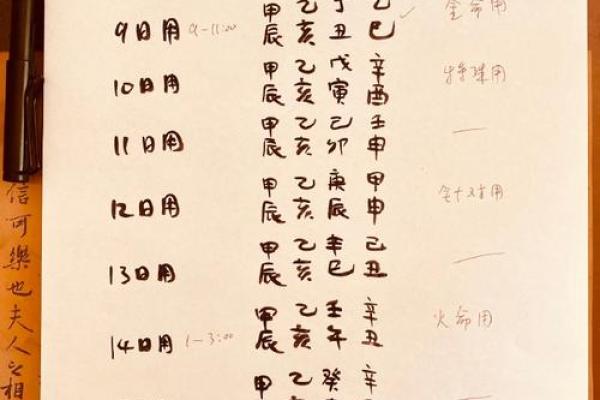 甲 乙 丁 乙 金命用
9日用 9-11:00 辰 亥 丑 巳
甲 乙 戊 辛 特殊用
10日用 辰 亥 寅 酉
甲 乙 己 壬
11日用 辰 亥 卯 申
甲 乙 庚 甲 针对用
12日用 辰 亥 辰 申
甲 乙 辛 己
13日用 辰 亥 巳 丑
甲 乙 壬 辛 火命用
14日用 1-3:00 辰 亥 午 丑
甲 乙 癸 辛
信可樂也夫人之相